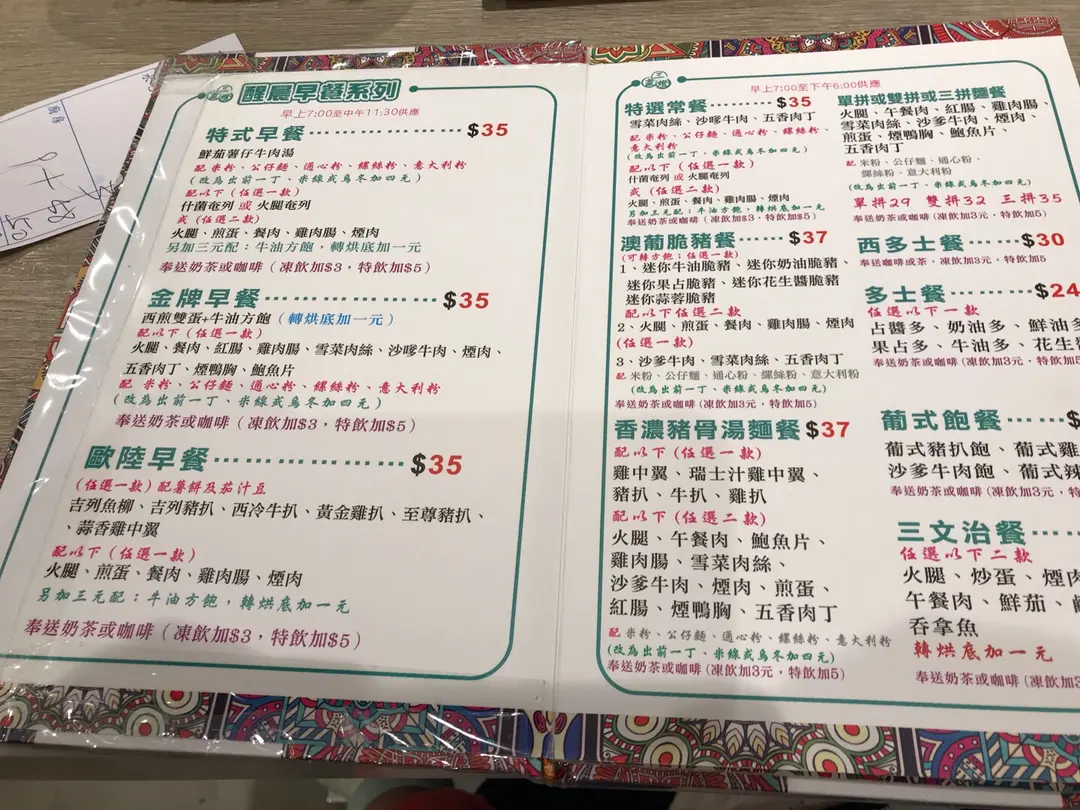 醒晨早餐系列
早上7:00至中午11:30供應
特式早餐 $35
鮮茄薯仔牛肉湯
配米粉、公仔麵、通心粉、螺絲粉、意大利粉
(改為出前一丁、米線或烏冬加四元)
配以下(任選一款)
什菌奄列 或 火腿奄列
或(任選二款)
火腿、煎蛋、餐肉、雞肉腸、煙肉
另加三元配：牛油方飽，轉烘底加一元
奉送奶茶或咖啡(凍飲加$3，特飲加$5)
金牌早餐 $35
西煎雙蛋+牛油方飽(轉烘底加一元)
配以下(任選一款)
火腿、餐肉、紅腸、雞肉腸、雪菜肉絲、沙嗲牛肉、煙肉、
五香肉丁、煙鴨胸、鮑魚片
配米粉、公仔麵、通心粉、螺絲粉、意大利粉
(改為出前一丁、米線或烏冬加四元)
奉送奶茶或咖啡(凍飲加$3，特飲加$5)
歐陸早餐 $35
(任選一款)配薯餅及茄汁豆
吉列魚柳、吉列豬扒、西冷牛扒、黃金雞扒、至尊豬扒、
、蒜香雞中翼
配以下(任選一款)
火腿、煎蛋、餐肉、雞肉腸、煙肉
另加三元配：牛油方飽，轉烘底加一元
奉送奶茶或咖啡(凍飲加$3，特飲加$5)
早上7:00至下午6:00供應
特選常餐 $35
雪菜肉絲、沙嗲牛肉、五香肉丁
配米粉、公仔麵、通心粉、螺絲粉、
意大利粉
(改為出前一丁、米線或烏冬加四元)
配以下(任選一款)
什菌奄列 或 火腿奄列
或(任選二款)
火腿、煎蛋、餐肉、雞肉腸、煙肉
另加三元配：牛油方飽，轉烘底加一元
奉送奶茶或咖啡(凍飲加$3，特飲加$5)
澳葡脆豬餐 $37
(可轉方飽：任選一款)
1、迷你牛油脆豬、迷你奶油脆豬、
迷你果占脆豬、迷你花生醬脆豬
迷你蒜蓉脆豬
配以下任選二款
2、火腿、煎蛋、餐肉、雞肉腸、煙肉
(任選一款)
3、沙爹牛肉、雪菜肉絲、五香肉丁
配米粉、公仔麵、通心粉、螺絲粉、意大利粉
(改為出前一丁、米線或烏冬加四元)
奉送奶茶或咖啡(凍飲加3元，特飲加5)
香濃豬骨湯麵餐 $37
配以下(任選一款)
雞中翼、瑞士汁雞中翼、
豬扒、牛扒、雞扒
配以下(任選二款)
火腿、午餐肉、鮑魚片、
雞肉腸、雪菜肉絲、
沙爹牛肉、煙肉、煎蛋、
紅腸、煙鴨胸、五香肉丁
配米粉、公仔麵、通心粉、螺絲粉、意大利粉
(改為出前一丁、米線或烏冬加四元)
奉送奶茶或咖啡(凍飲加3元，特飲加5)
單拼或雙拼或三拼麵餐
火腿、午餐肉、紅腸、雞肉腸、
雪菜肉絲、沙爹牛肉、煙肉、
煎蛋、煙鴨胸、鮑魚片、
五香肉丁
配 米粉、公仔麵、通心粉、
螺絲粉、意大利粉
(改為出前一丁、米線或烏冬加四元)
單拼29 雙拼32 三拼35
奉送奶茶或咖啡(凍飲加3元，特飲加5)
西多士餐 $30
奉送奶茶或咖啡，凍飲加3元，特飲加5
多士餐 $24
任選以下一款
占醬多、奶油多、鮮油多
果占多、牛油多、花生
奉送奶茶或咖啡(凍飲加3元，特飲加5
葡式飽餐 $
葡式豬扒飽、葡式雞
沙爹牛肉飽、葡式辣
奉送奶茶或咖啡(凍飲加3元，特
三文治餐
任選以下二款
火腿、炒蛋、煙肉
午餐肉、鮮茄、
吞拿魚
轉烘底加一元
奉送奶茶或咖啡(凍飲加3